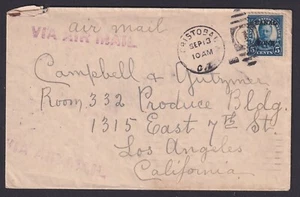 air mail
VIA AIR MAIL
CRISTOBAL
SEP 13
10 AM
C.Z.
Campbell & Gutzmer
Room 332 Produce Bldg.
1315 East 7th St
Los Angeles
California
VIA AIR MAIL